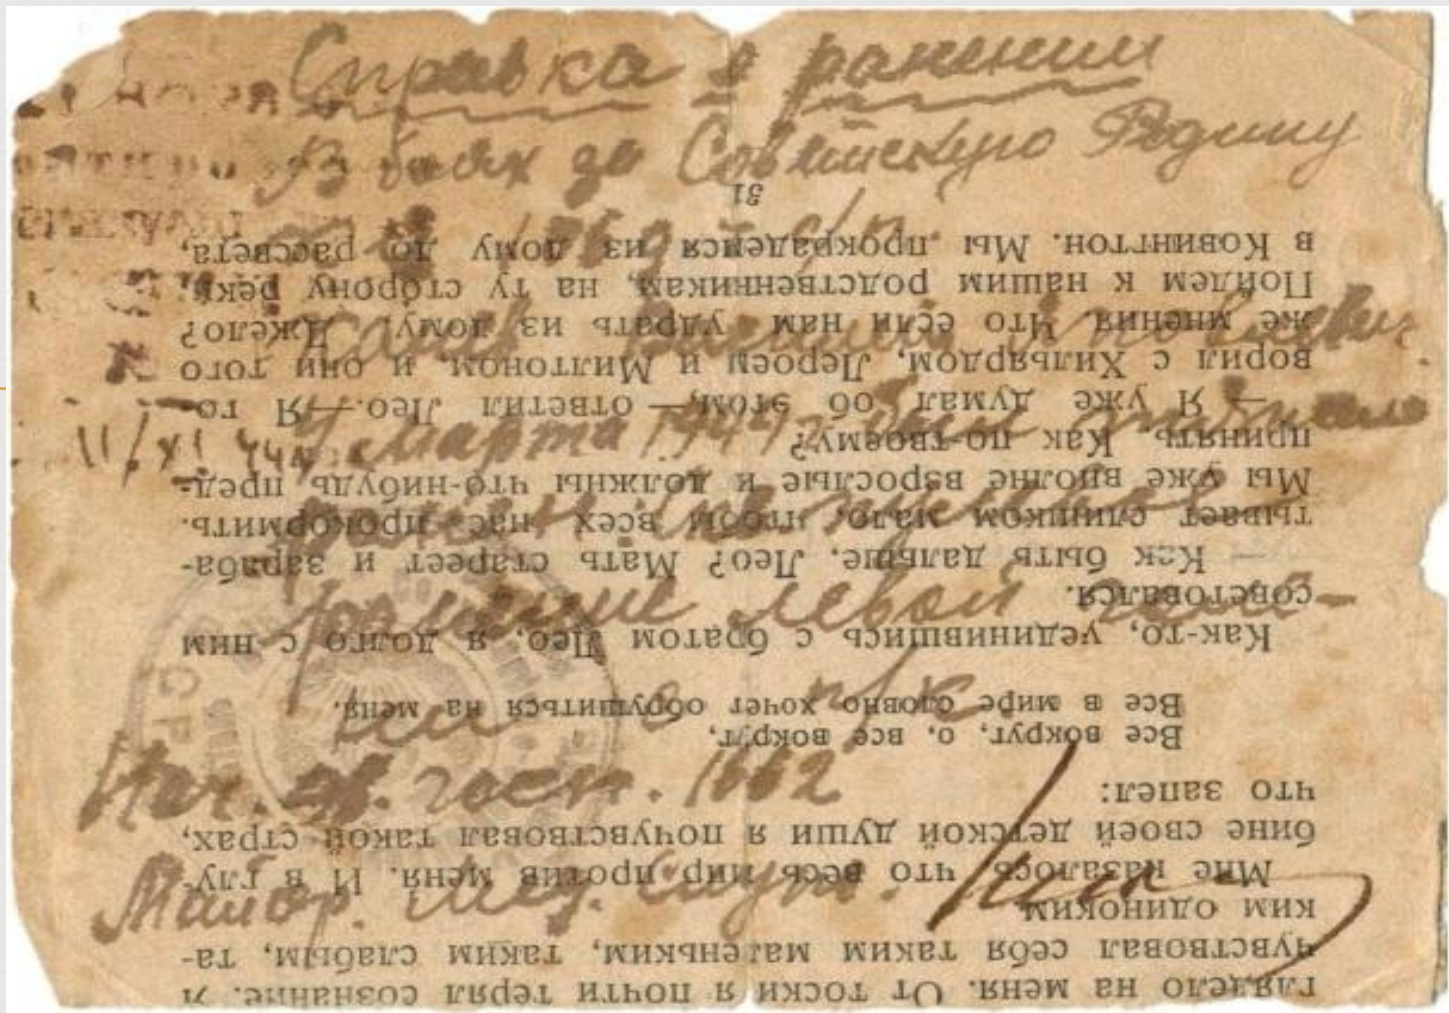 Справка о ранении
В боях за Советскую Родину
с/п.
7 марта 1944 г. был
ранен.
ранение левой голе-
ни в п/к.
Нач. эв. госп. 1662
Майор. Мед. Служ.
11/XI 44
глядело на меня. От тоски я почти терял сознание. Я
чувствовал себя таким маленьким, таким слабым, та-
ким одиноким
Мне казалось, что весь мир против меня. И в глу-
бине своей детской души я почувствовал такой страх,
что запел:
Все вокруг, о, все вокруг,
Все в мире словно хочет обрушиться на меня.
Как-то, уединившись с братом Лео, я долго с ним
советовался.
— Как быть дальше, Лео? Мать стареет и зараба-
тывает слишком мало, чтобы всех нас прокормить.
Мы уже вполне взрослые и должны что-нибудь пред-
принять. Как по-твоему?
— Я уже думал об этом, — ответил Лео. — Я го-
ворил с Хильярдом, Лероем и Милтоном, и они того
же мнения. Что если нам удрать из дому, Джело?
Пойдем к нашим родственникам, на ту сторону реки,
в Ковингтон. Мы прокрадемся из дому до рассвета,
31